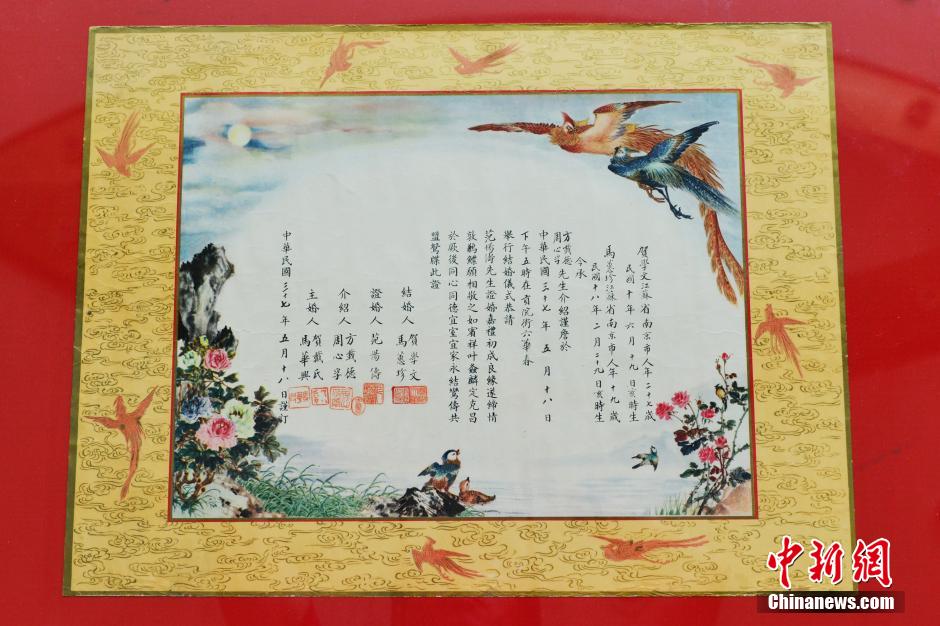 賀學文江蘇省南京市人年二十七歲
民國十年六月十九日亥時生
馬蕙珍江蘇省南京市人年十九歲
民國十八年二月二十九日亥時生
今承
方載德
周心孚先生介紹謹詹於
中華民國三十七年五月十八日
下午五時在貢院街六華春
舉行結婚儀式恭請
范先生證婚嘉禮初成良緣遂締情
敦鶼鰈願相敬之如賓祥叶螽麟定克昌
於厥後同心同德宜室宜家永結鸞儔共
盟鴛牒此證
結婚人賀學文
馬蕙珍
證婚人范
介紹人方載德
周心孚
主婚人賀戴氏
馬華興
中華民國三十七年五月十八日謹訂
中新网
Chinanews.com